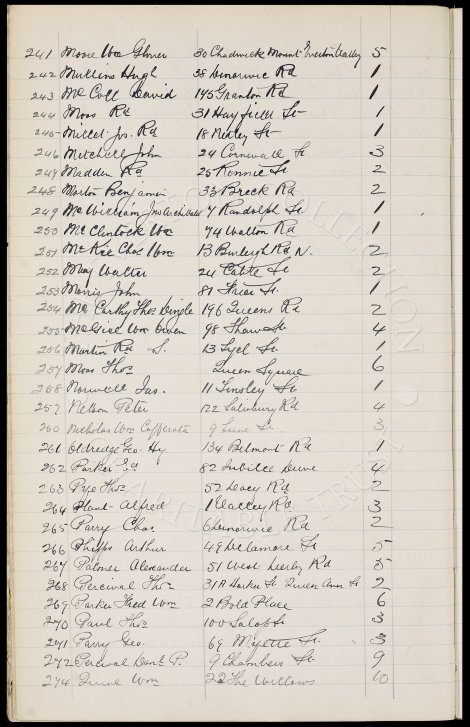 241 Moore Wm Glover 30 Chadwick Mount Everton Valley 5
242 Mullins Hugh 38 Dinorwic Rd 1
243 McColl David 145 Granton Rd 1
244 Moss Rd 31 Hayfield St 1
245 Millet Jos. Rd 18 St 1
246 Mitchell John 24 Cornwall St 3
247 Madden Rd 25 Rennie St 2
248 Morton Benjamin 33 Breck Rd 2
249 McWilliam Jno 7 Randolph St 1
250 McClintock Wm 74 Walton Rd 1
251 McKie Chas Wm 13 Burleigh Rd N. 2
252 May Walter 24 St 2
253 Morris John 81 St. 1
254 McCarthy Thos Dingle 196 Queens Rd 2
255 Wm Owen 98 Shaw St 4
256 Martin Rd S. 13 St. 1
257 Moss Thos Queen Square 6
258 Norwell Jas. 11 Tinsley St 1
259 Nelson Peter 122 Salisbury Rd 4
260 Nicholas Wm Cafferata 9 Lune St. 3
261 Oldredge Geo. Hy. 134 Belmont Rd 1
262 Parker 82 Jubilee Drive 4
263 Pye Thos 52 Lacey Rd 2
264 Plant Alfred 1 Rd 3
265 Parry Chas 6 Dinorwic Rd 2
266 Phipps Arthur 49 Delamore St 5
267 Palmer Alexander 51 West Derby Rd 5
268 Percival Thos 31A Harker St Queen Ann St 2
269 Parker Fred Wm 2 Bold Place 6
270 Paul Thos 100 Salop St 3
271 Parry Geo. 69 St. 3
272 Percival Danl P. 9 Chambers St. 9
274 Wm 22 The Willows 10
COLLECTION
TRUST